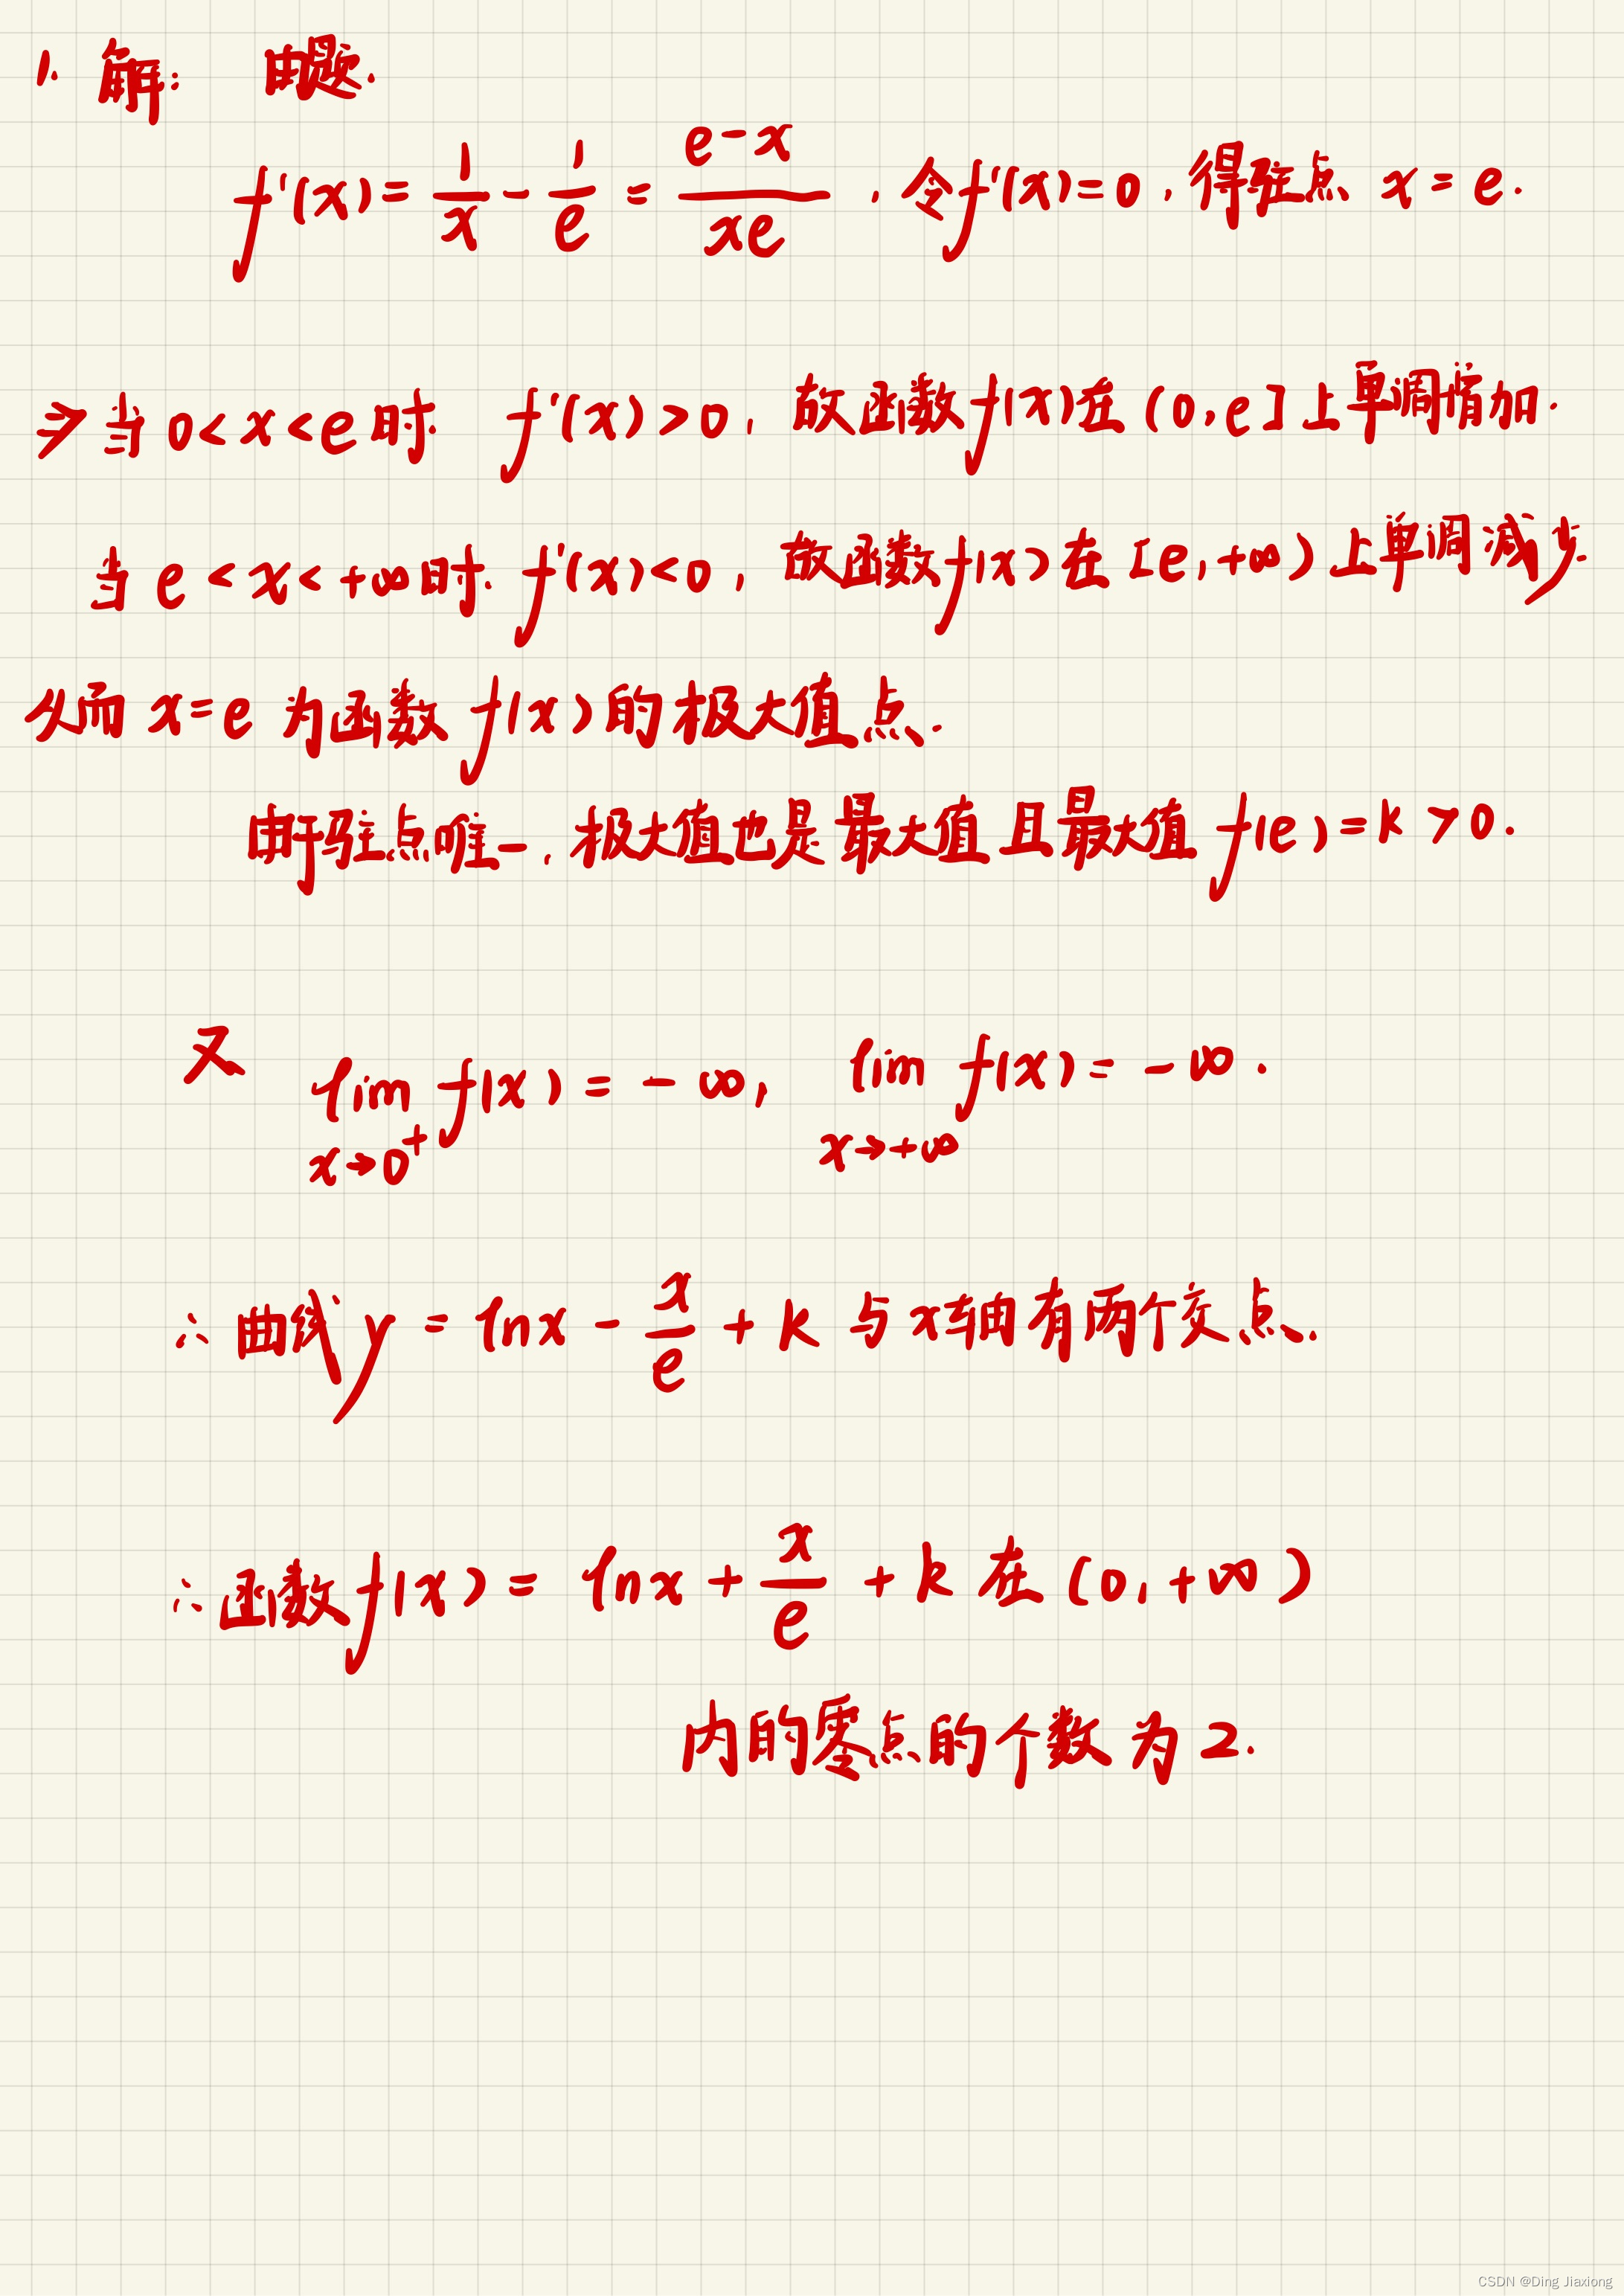 1. 解: 由题.
f'(x)=1/x-1/e=(e-x)/(xe), 令f'(x)=0, 得驻点 x=e.
⇒当 0<x<e时. f'(x)>0, 故函数f(x)在(0,e]上单调增加.
当 e<x<+∞时. f'(x)<0, 故函数f(x)在[e,+∞)上单调减少
从而 x=e 为函数 f(x)的极大值点.
由于驻点唯一, 极大值也是最大值且最大值 f(e)=k>0.
又 lim f(x)=-∞, lim f(x)=-∞.
x→0⁺ x→+∞
∴曲线y=lnx-x/e+k 与x轴有两个交点.
∴函数f(x)=lnx+x/e+k 在(0,+∞)
内的零点的个数为2.
CSDN @Ding Jiaxiong